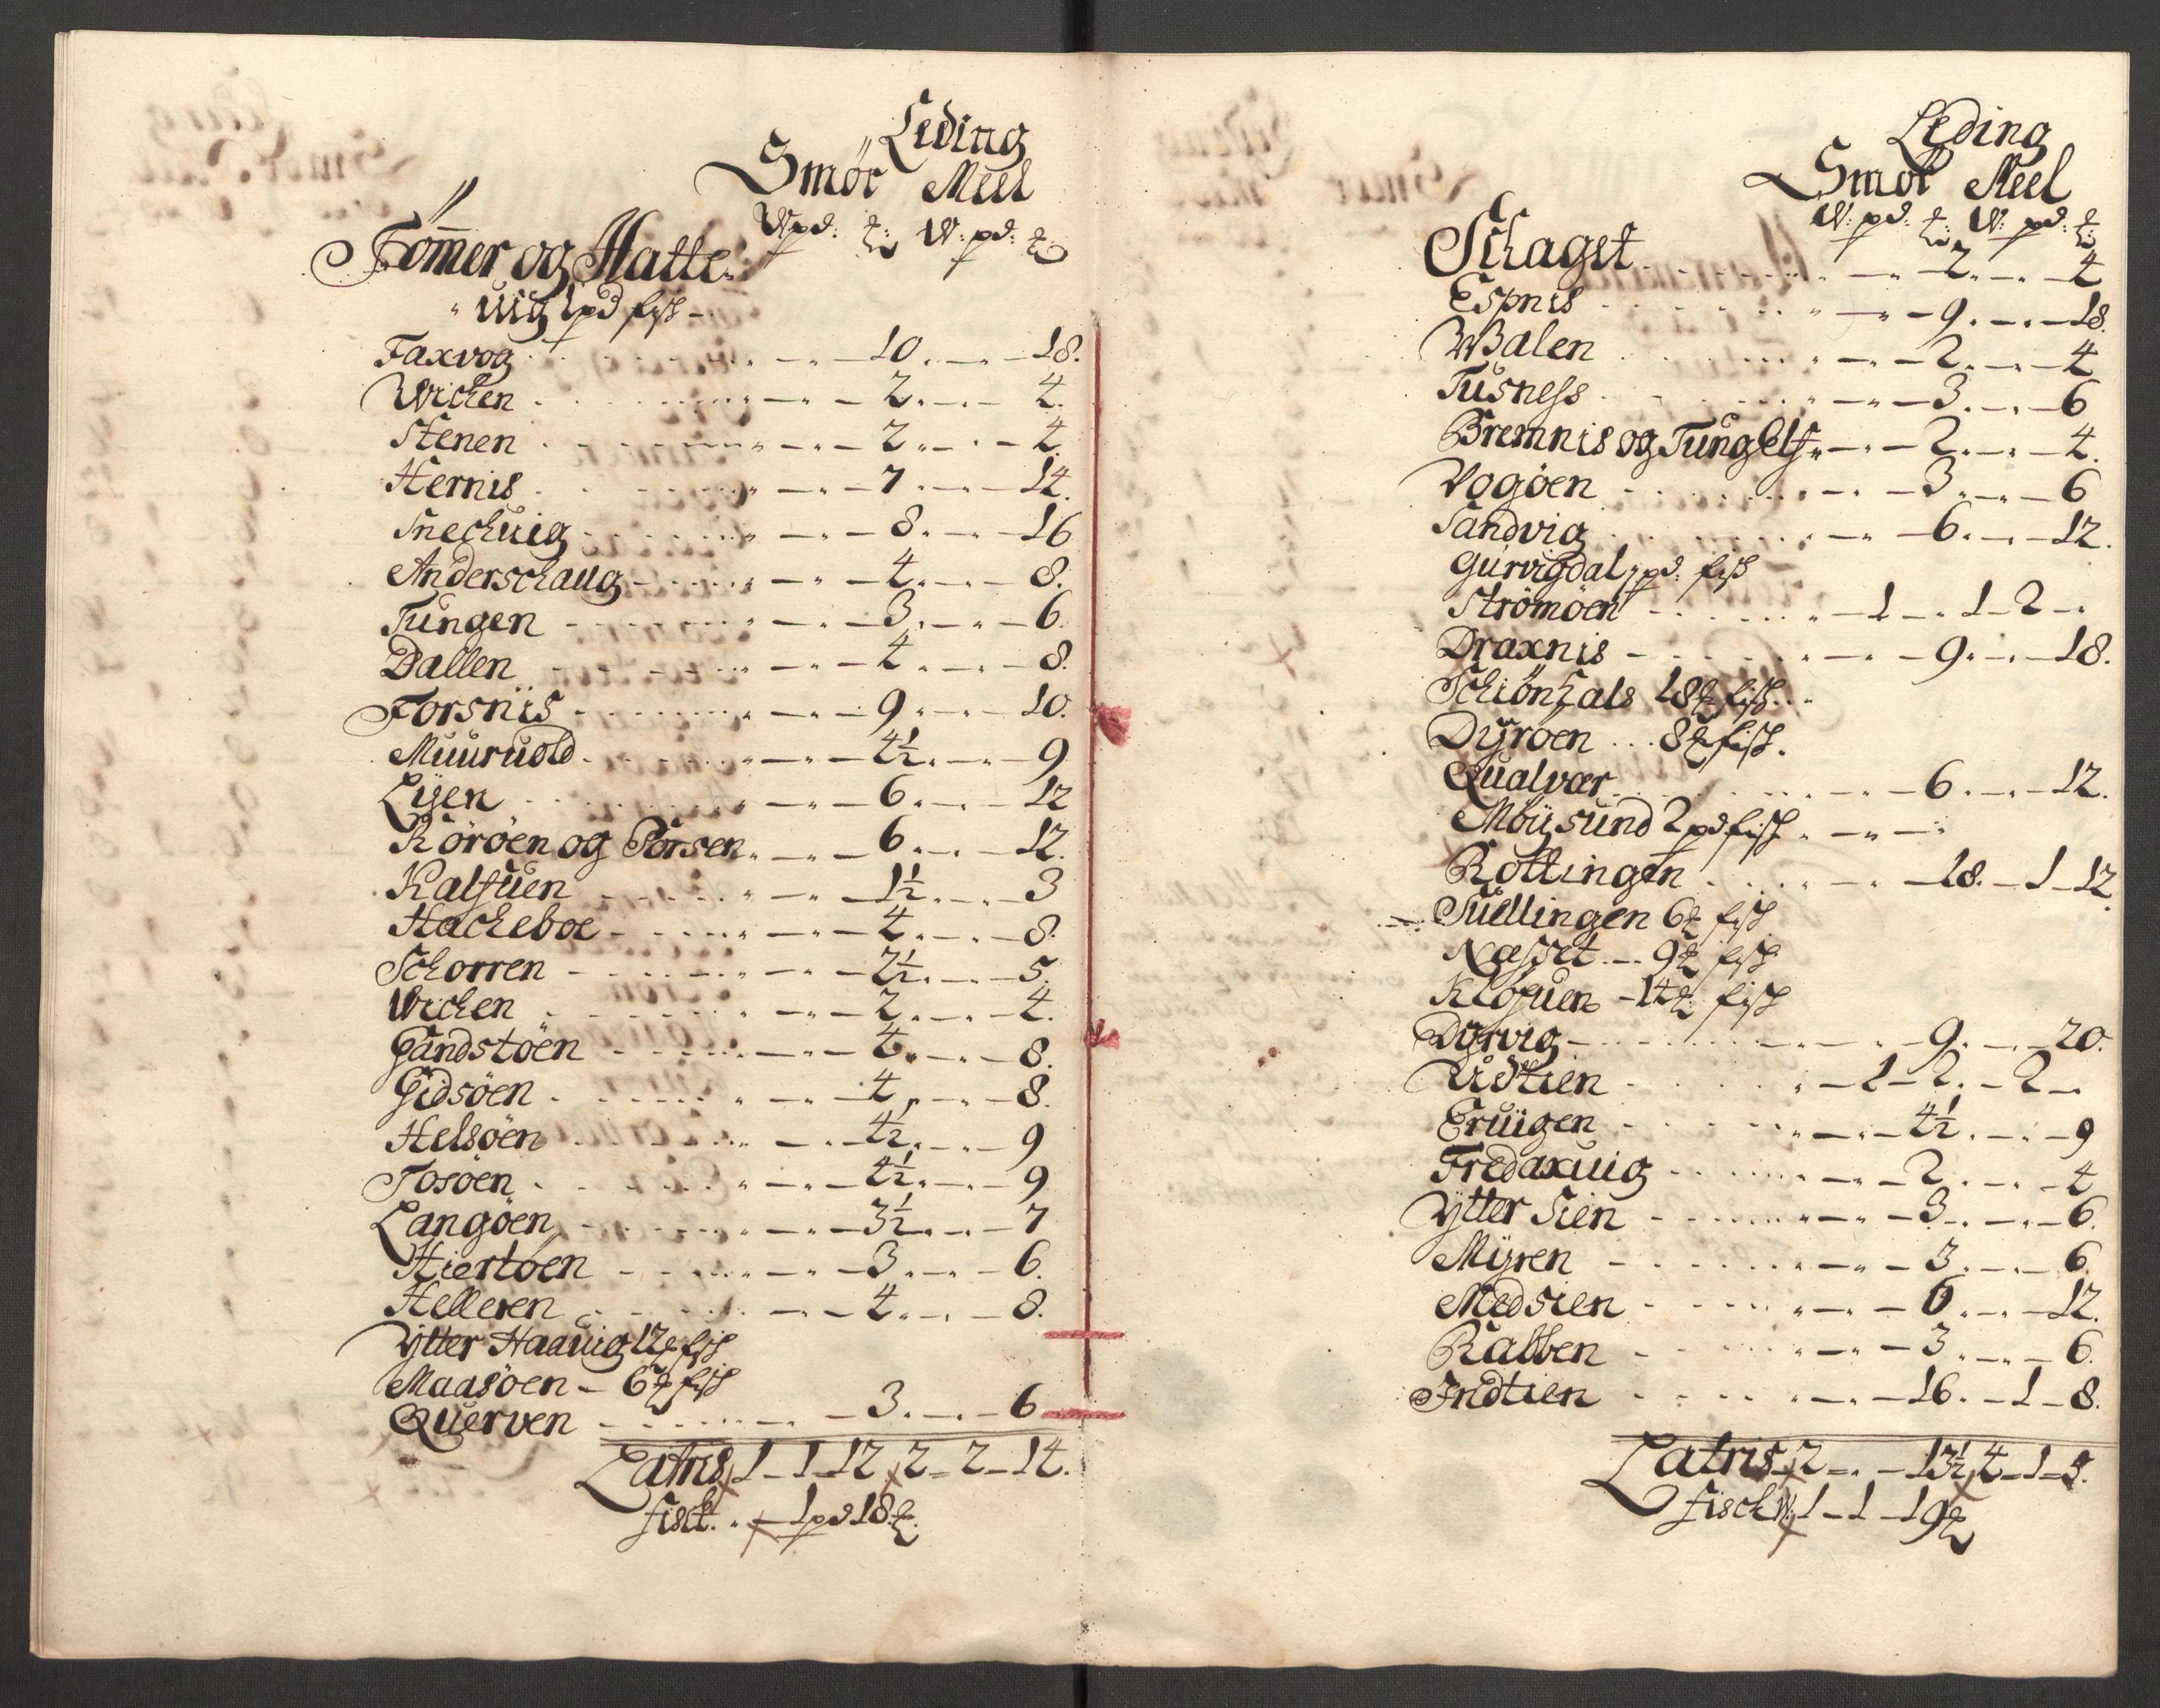 Leding
Smör Meel
W pd: ℔: W: pd: ℔
Tömmer og Hatte-
uig 1 pd fisk
Faxvog 10 18.
Wichen 2 4.
Stenen 2 4
Hernis 7 14.
Snechuig 8 16
Anderschaug 4 8.
Tungen 3 6
Dallen 4 8.
Forsnis 9 10.
Muuruold 4½ 9
Lijen 6 12
Köröen og Porsen 6 12.
Kalfuen 1½ 3
Hacheboe 4 8.
Schorren 2½ 5.
Wichen 2 4.
Sandstöen 4 8.
Gidsöen 4 8.
Helsöen 4½ 9
Tosöen 4½ 9
Langöen 3½ 7
Hiertöen 3 6.
Helleren 4 8.
Ytter Haauig 12 ℔ fisk
Maasöen - 6 ℔ fisk
Querven 3 6
Latris 1 - 1 - 12, 2 - 2 - 14.
fisk. 1 pd 18 ℔.
Leding
Smör Meel
W: pd: ℔ W: pd: ℔:
Schaget 2 4
Espnis 9 18.
Walen 2 4
Tusness 3 6
Bremnis og Tungelf 2 4.
Vogöen 3 6
Sandvig 6 12.
Gurvigdal 1 pd: fisk
Strömöen 1 1 2
Draxnis 9 18.
Schiönhals 18 ℔ fisk
Dyröen 8 ℔ fisk.
Qualvær 6 12.
Möysund 2 pd fisk
Rottingen 18. 1 12.
Suellingen 6 ℔ fisk
Næsset 9 ℔ fisk
Klöfuen - 14 ℔: fisk
Dyrvig 9 20.
Udtien 1 2 2
Eruigen 4½ 9
Fredaxuig 2 4
Ytter Sien 3 6.
Myren 3 6
Medsien 6 12.
Rabben 3 6.
Indtien 16. 1 8.
Latris 2 - - 13½, 4 - 1 - 5.
fisch W: 1 - 1 - 19 ℔